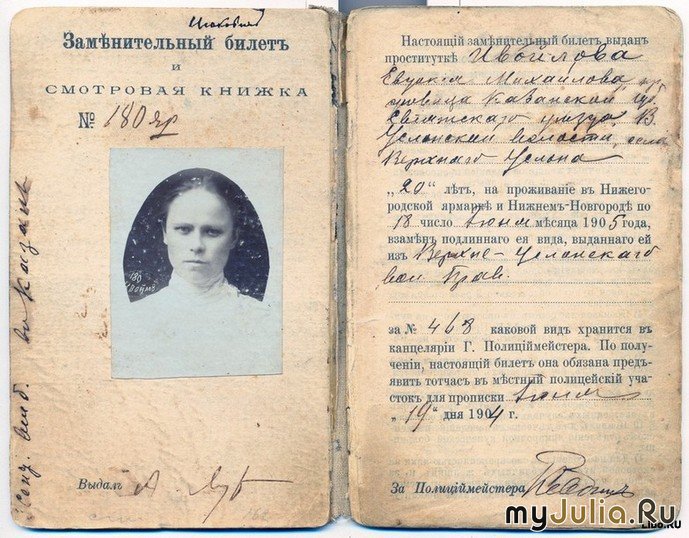 Замѣнительный билетъ
и
СМОТРОВАЯ КНИЖКА
№ 180 яр
180
Выдалъ
Настоящій замѣнительный билетъ выданъ
проституткѣ Ивойлова
Евдокія Михайлова, кр
Казанской губ.
Свіяжскаго уѣзда, В.
Услонской волости, села
Верхняго Услона
„20“ лѣтъ, на проживаніе въ Нижего-
родской ярмаркѣ и Нижнемъ-Новгородѣ по
18 число Іюня мѣсяца 1905 года,
взамѣнъ подлиннаго ея вида, выданнаго ей
изъ Верхне-Услонскаго
вол. Прав.
за № 468 каковой видъ хранится въ
канцеляріи Г. Полиціймейстера. По полу-
ченіи, настоящій билетъ она обязана предъ-
явить тотчасъ въ мѣстный полицейскій уча-
стокъ для прописки Іюня
„19“ дня 1904 г.
За Полиціймейстера
myJulia.Ru